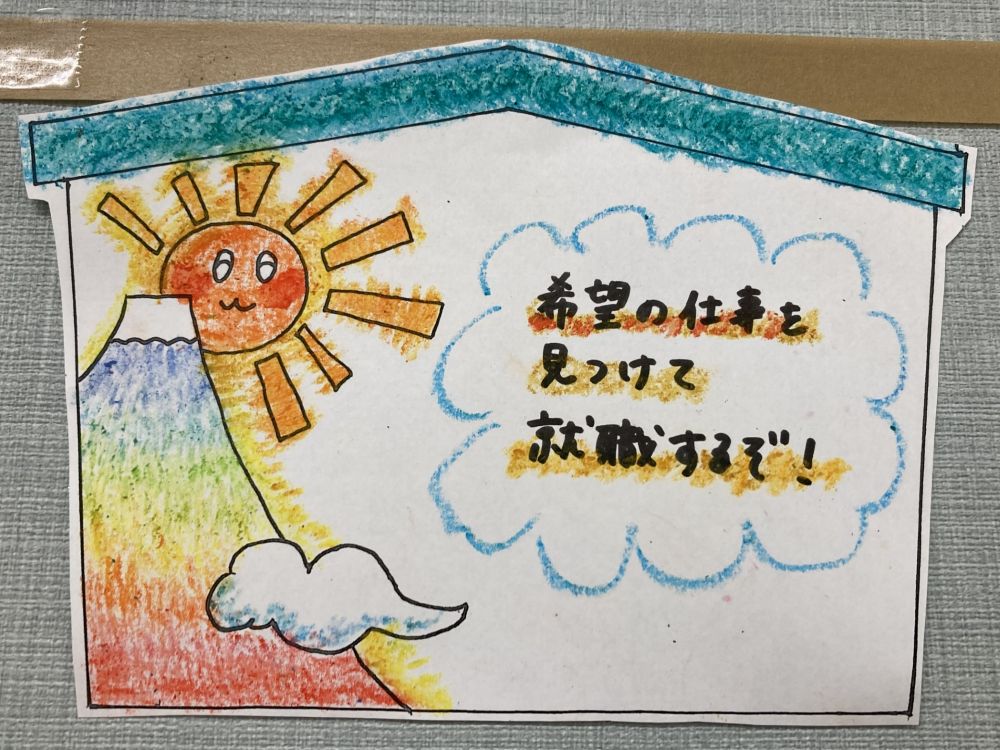 希望の仕事を
見つけて
就職するぞ!